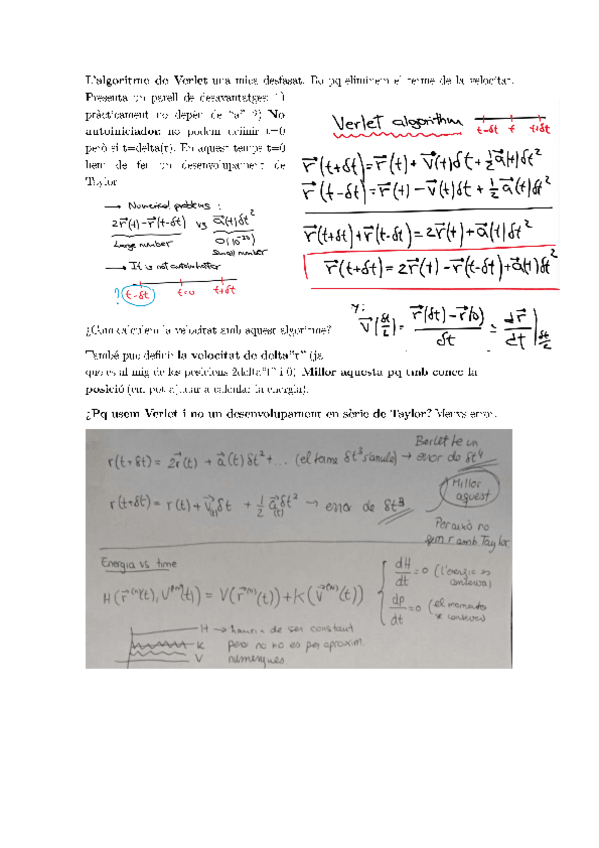 L'algoritme de Verlet una mica desfasat. Bo pq eliminem el terme de la velocitat.
Presenta un parell de desavantatges: 1)
pràcticament no depèn de "a" 2) No
autoiniciador: no podem definir t=0
però si t=delta(t). En aquest temps t=0
hem de fer un desenvolupament de
Taylor
→ Numerical problems :
2r⃗(t) - r⃗(t-δt) vs a⃗(t)δt²
Large number
Small number
→ It is not autostarter
? t-δt t=0 t+δt
Verlet algorithm
t-δt t t+δt
r⃗(t+δt) = r⃗(t) + v⃗(t)δt + ½a⃗(t)δt²
r⃗(t-δt) = r⃗(t) - v⃗(t)δt + ½a⃗(t)δt²
r⃗(t+δt) + r⃗(t-δt) = 2r⃗(t) + a⃗(t)δt²
r⃗(t+δt) = 2r⃗(t) - r⃗(t-δt) + a⃗(t)δt²
¿Com calculem la velocitat amb aquest algoritme?
v⃗(δt/2) = (r⃗(δt) - r⃗(0))/δt ≃ dr⃗/dt |δt/2
També puc definir la velocitat de delta"t" (ja
que es al mig de les posicions 2delta"t" i 0) Millor aquesta pq tmb conec la
posició (em pot ajudar a calcular la energia).
¿Pq usem Verlet i no un desenvolupament en sèrie de Taylor? Menys error.
r(t+δt) = 2r⃗(t) + a⃗(t)δt² + ... (el terme δt³ s'anula) → error de δt⁴
r(t+δt) = r(t) + v⃗(t)δt + ½ a⃗(t)δt² → error de δt³
Millor
aquest
Per això no
fem r amb Taylor
Energia vs time
H(r⃗⁽ⁿ⁾(t), v⃗⁽ⁿ⁾(t)) = V(r⃗⁽ⁿ⁾(t)) + K(v⃗⁽ⁿ⁾(t))
dH/dt = 0 (l'energia es
conserva)
dp/dt = 0 (el momento
se conserva)
H → hauria de ser constant
K però no ho es per aproxim.
V numèriques.